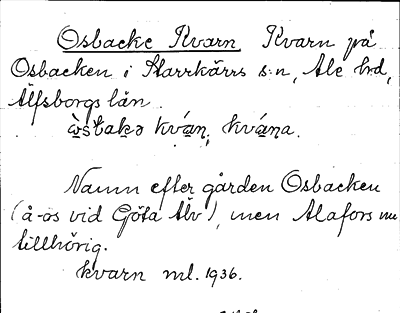 Osbacke Kvarn Kvarn på
Osbacken i Starrkärrs s:n, Ale hrd,
Älfsborgs län
kván, kvána.
Namn efter gården Osbacken
(å-os vid Göta Älv), men Alafors nu
tillhörig.
kvarn ml. 1936.